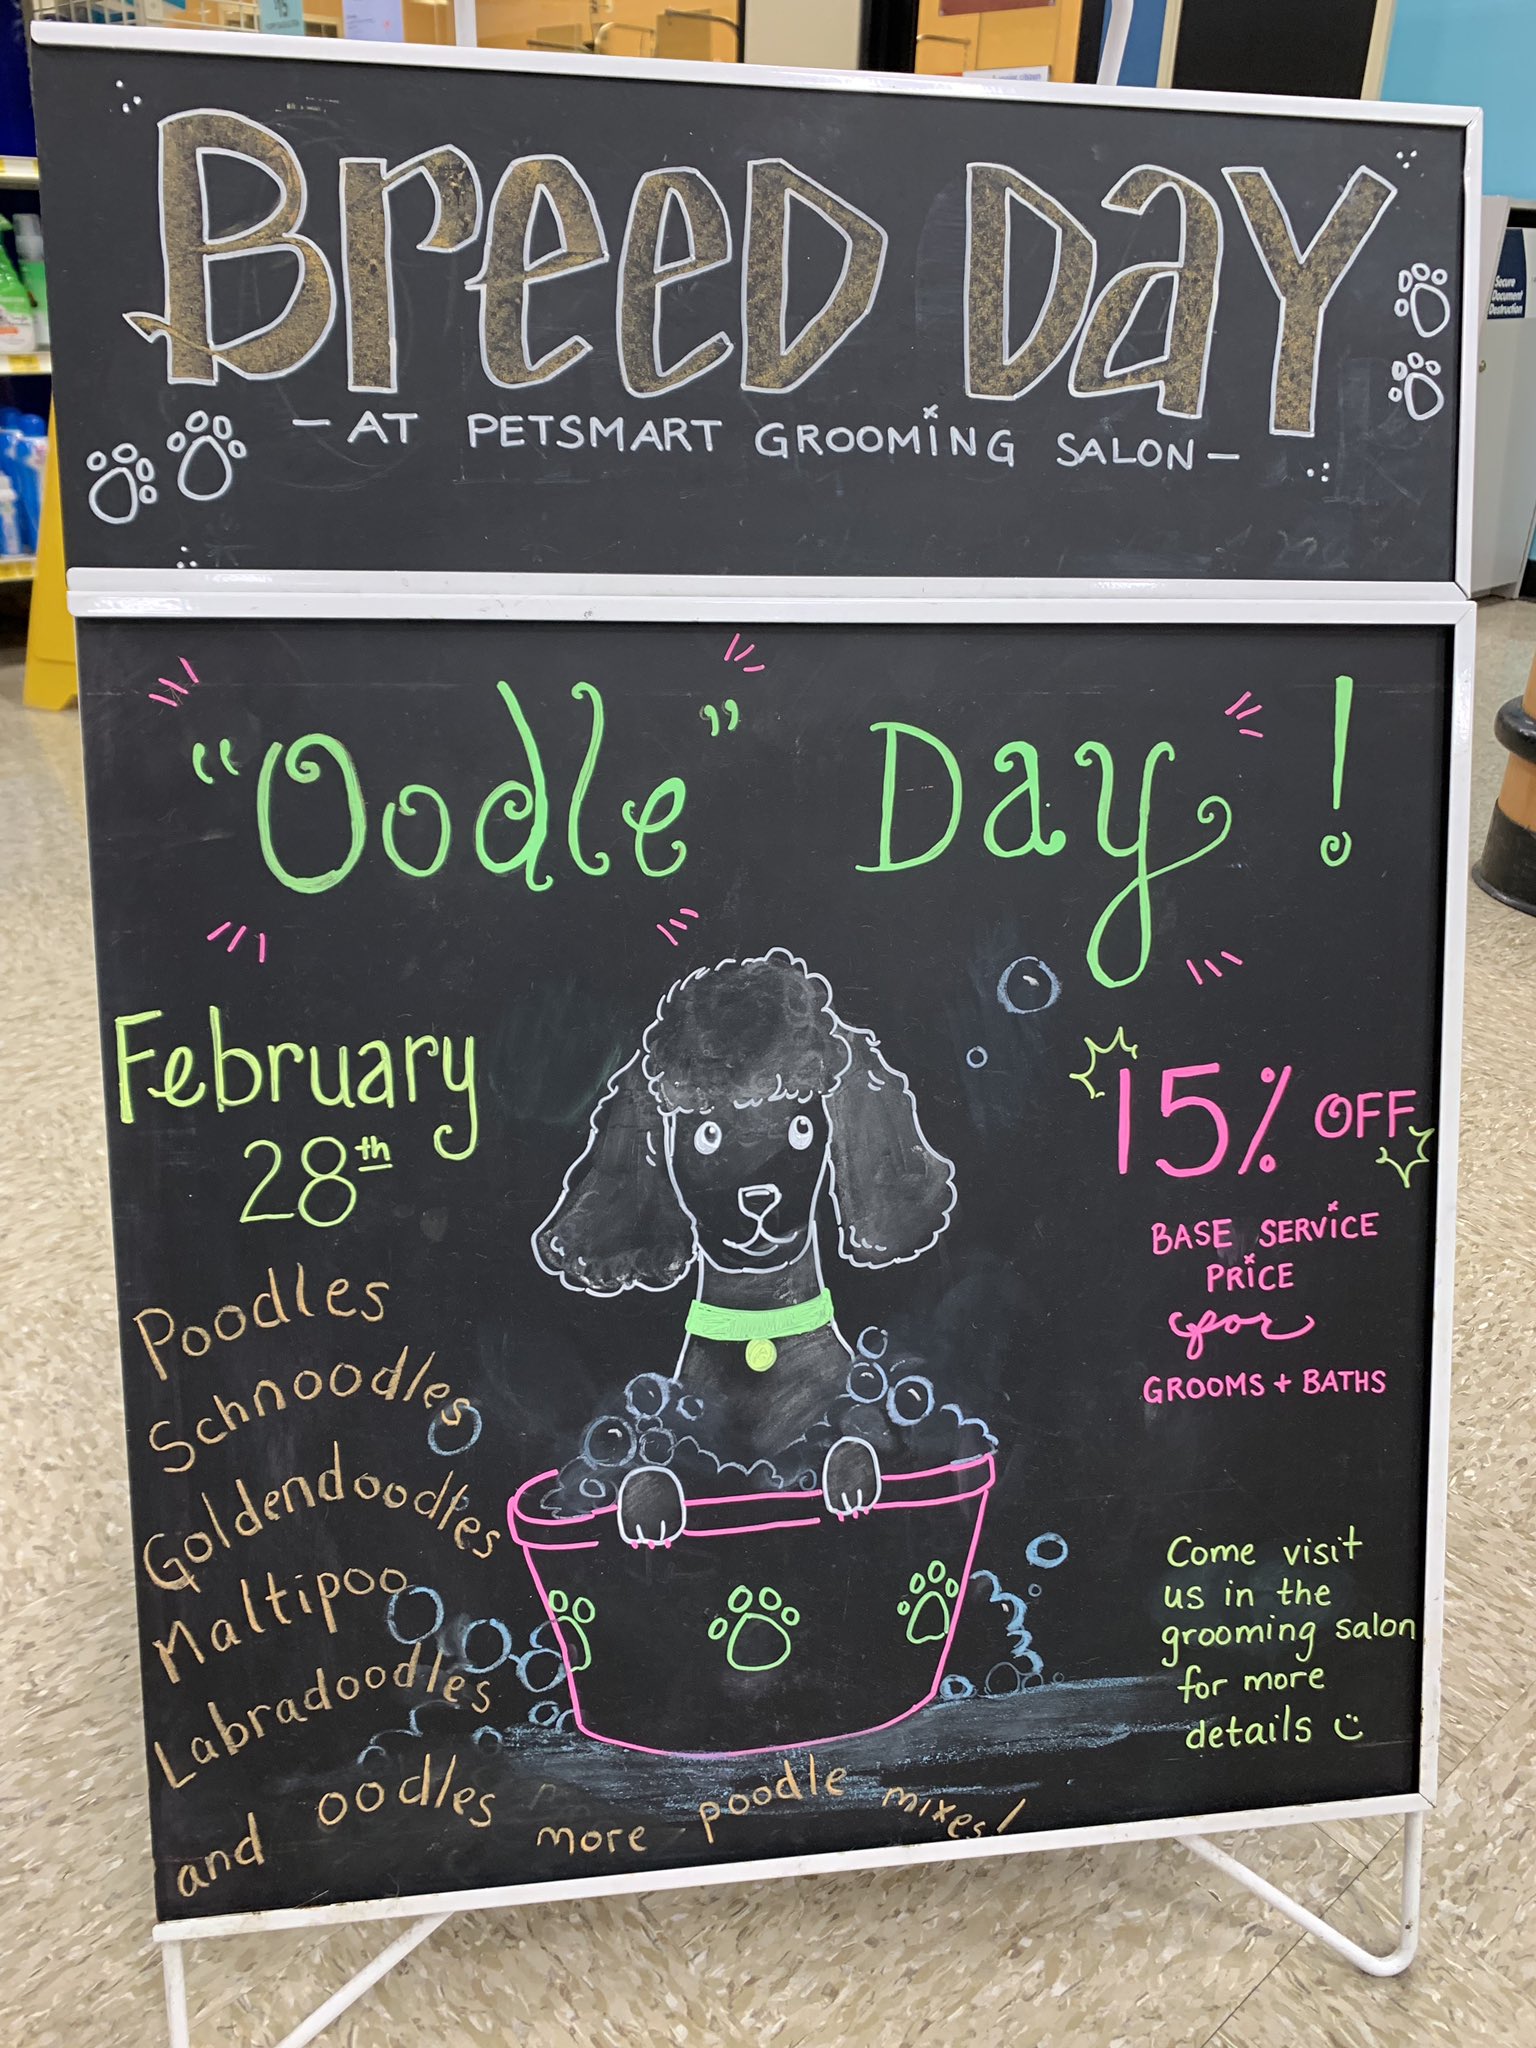 Breed Day
- AT PETSMART GROOMING SALON -
"Oodle" Day!
February
28th
Poodles
Schnoodles
Goldendoodles
Maltipoo
Labradoodles
and oodles more poodle mixes!
15% OFF
BASE SERVICE
PRICE
for
GROOMS + BATHS
Come visit
us in the
grooming salon
for more
details
Secure
Document
Destruction